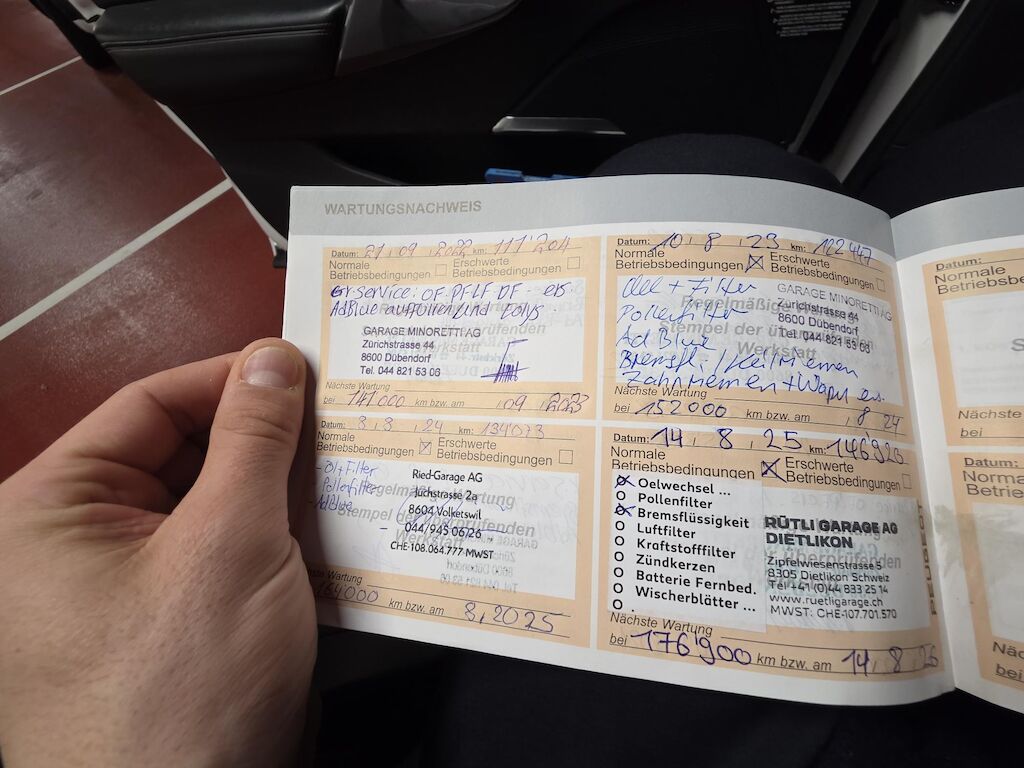 WARTUNGSNACHWEIS
Datum: 21 . 09 . 2022 km: 111'204
Normale Betriebsbedingungen
Erschwerte Betriebsbedingungen
service: OF. PF. LF DF - ers
AdBlue auffüllen und
GARAGE MINORETTI AG
Zürichstrasse 44
8600 Dübendorf
Tel. 044 821 53 06
Nächste Wartung
bei 141'000 km bzw. am . 09 . 2023
Datum: 10 . 8 . 23 km: 122'447
Normale Betriebsbedingungen
Erschwerte Betriebsbedingungen
Oel + Filter
Pollenfilter
Ad Blue
Bremsfl. / Keilriemen
Zahnriemen + Wapu ers.
GARAGE MINORETTI AG
Zürichstrasse 44
8600 Dübendorf
Tel. 044 821 53 06
Nächste Wartung
bei 152000 km bzw. am . 8 . 24
Datum: 8 . 8 . 24 km: 134'073
Normale Betriebsbedingungen
Erschwerte Betriebsbedingungen
- Öl + Filter
- Pollenfilter
- AdBlue
Ried-Garage AG
Juchstrasse 2a
8604 Volketswil
044/945 06/26
CHE-108.064.777 MWST
Nächste Wartung
164000 km bzw. am 8.2025
Datum: 14 . 8 . 25 146'920
Normale Betriebsbedingungen
Erschwerte Betriebsbedingungen
Oelwechsel ...
Pollenfilter
Bremsflüssigkeit
Luftfilter
Kraftstofffilter
Zündkerzen
Batterie Fernbed.
Wischerblätter ...
RÜTLI GARAGE AG
DIETLIKON
Zipfelwiesenstrasse 5
8305 Dietlikon Schweiz
Tel +41 (0)44 833 25 14
www.ruetligarage.ch
MWST: CHE-107.701.570
Nächste Wartung
bei 176'900 km bzw. am 14 . 8 . 26
PEUGEOT
Datum:
Normale
Betriebs
Nächste
bei
Datum:
Norma
Betrie
bei